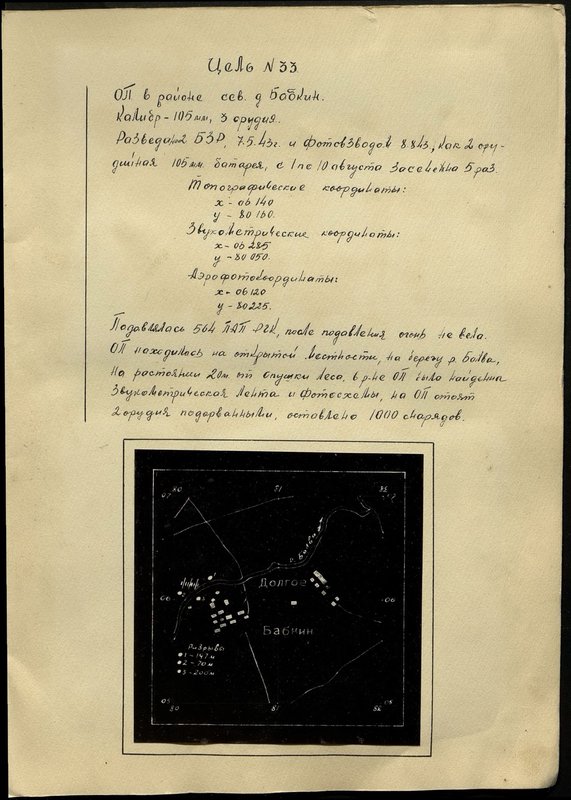 Цель N 33
ОП в районе сев. д Бабкин.
Калибр - 105 мм, 3 орудия.
Разведана БЗР, 7.5.43г. и фотовзводом 8.8.43, как 2 ору-
дийная 105мм. батарея, с 1 по 10 августа засечена 5 раз.
Топографические координаты:
х - 06 140
у - 80 160.
Звукометрические координаты:
х - 06 285
у - 80 050.
Аэрофотокоординаты:
х - 06 120
у - 80225.
Подавлялась 564 ПАП РГК, после подавления огонь не вела.
ОП находилась на открытой местности, на берегу р. Болва,
на растоянии 20м. от опушки леса, в р-не ОП была найдена
Звукометрическая лента и фотосхемы, на ОП стоят
2 орудия подорванными, оставлено 1000 снарядов.
80 81 82
07
р. Болва
Долгое
06 06
Бабкин
Разрывы
1 - 147 м
2 - 70 м
3 - 200 м
05 05
80 81 82